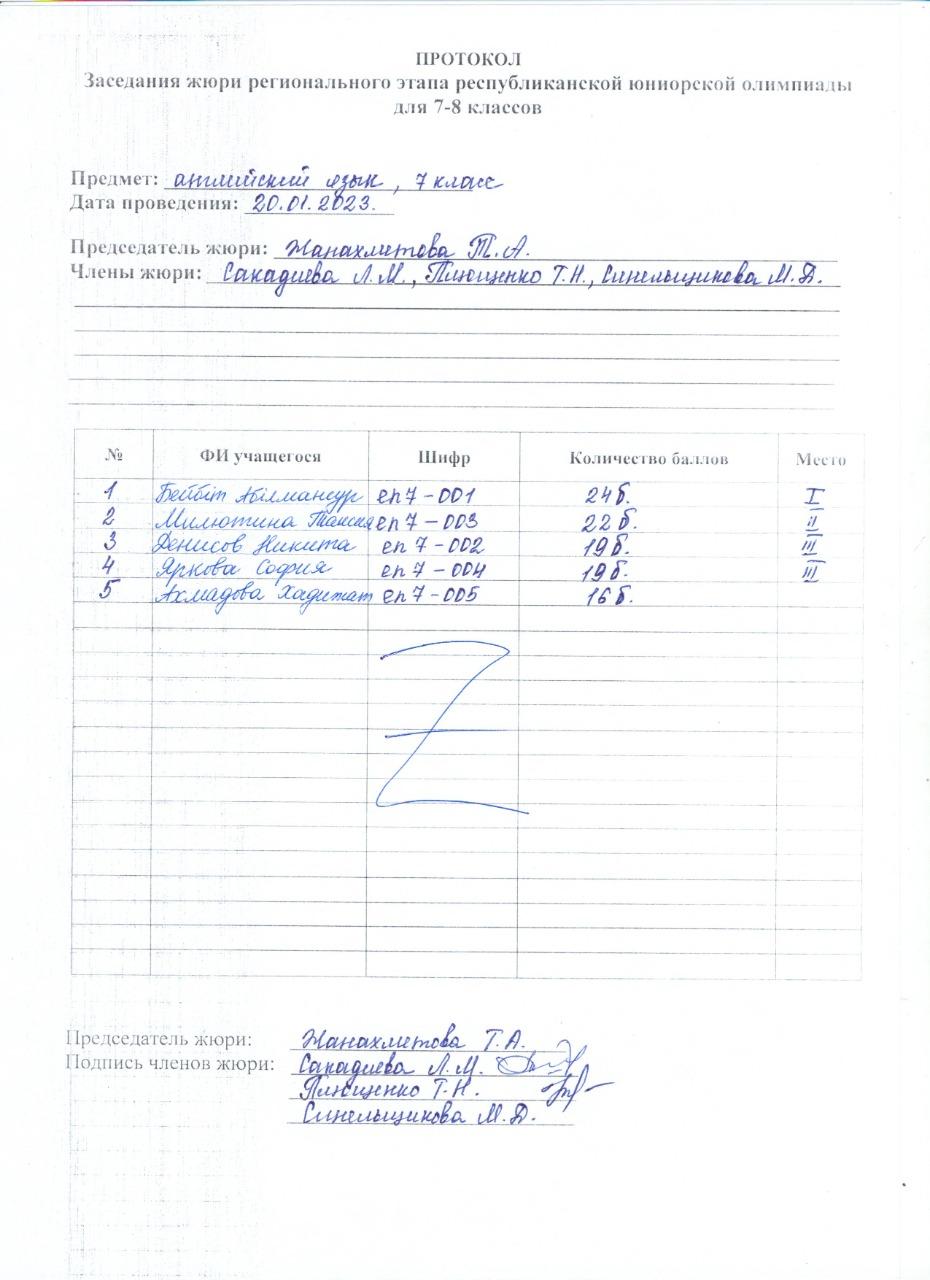 ПРОТОКОЛ
Заседания жюри регионального этапа республиканской юниорской олимпиады
для 7-8 классов
Предмет: английский язык, 7 класс
Дата проведения: 20.01.2023.
Председатель жюри: Жанахметова Т.А.
Члены жюри: Сакадиева Л.М., Плющенко Т.Н., Синельщикова М.Д.
№ ФИ учащегося Шифр Количество баллов Место
1 Бейбіт Абілмансур еп7-001 24б. I
2 Милютина еп7-003 22б. II
3 Денисов Никита еп7-002 19б. III
4 Яркова София еп7-004 19б. III
5 Ахмадова Хадижат еп7-005 16б.
Председатель жюри: Жанахметова Т.А.
Подпись членов жюри: Сакадиева Л.М.
Плющенко Т.Н.
Синельщикова М.Д.